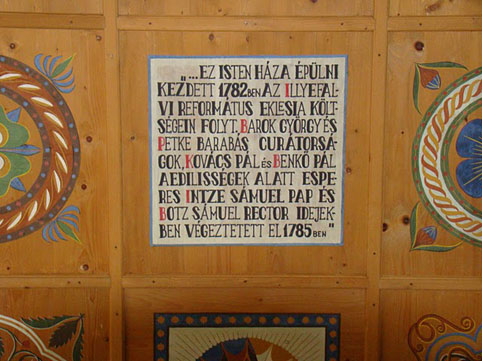 „...EZ ISTEN HÁZA ÉPÜLNI
KEZDETT 1782BEN AZ ILLYEFAL-
VI REFORMÁTUS EKLESIA KÖLT-
SÉGEIN FOLYT, BAROK GYÖRGY ÉS
PETKE BARABÁS CURÁTORSÁ-
GOK, KOVÁCS PÁL ÉS BENKŐ PÁL
AEDILISSÉGEK ALATT ESPE-
RES INTZE SÁMUEL PAP ÉS
BOTZ SÁMUEL RECTOR IDEJEK-
BEN VÉGEZTETETT EL 1785BEN"